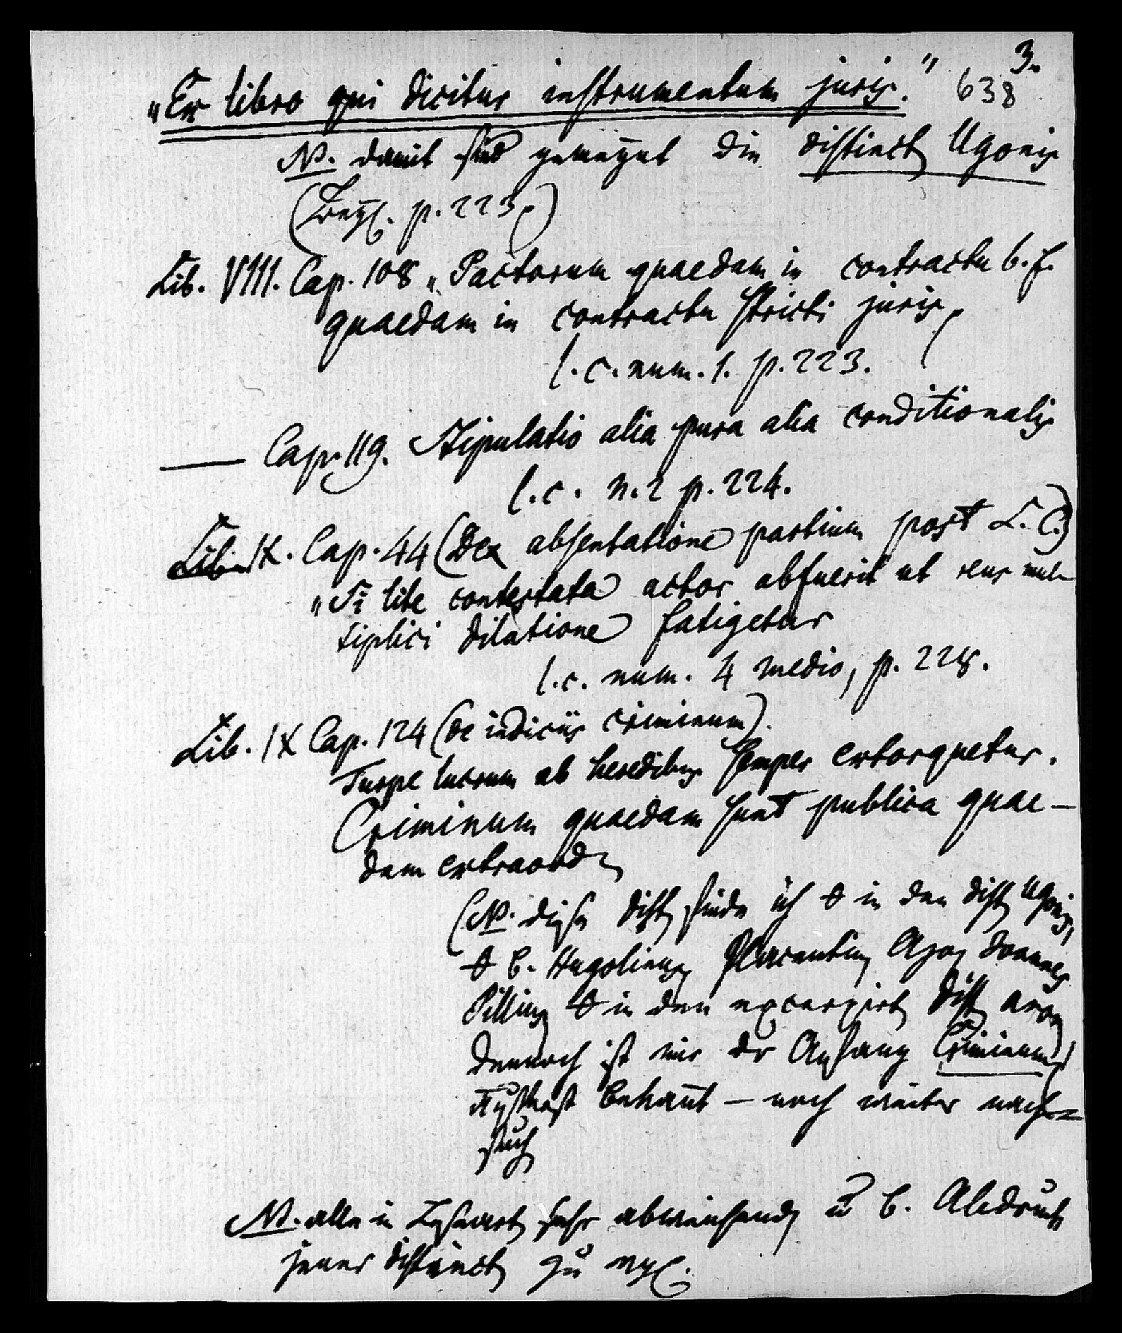 3.
„Ex libro qui dicitur instrumentum juris." 638
NB. damit sind gemeynt die distinct Ugonis
p. 223.)
Lib. VIII. Cap. 108 „Pactorum quaedam in contractu b. f.
quaedam in contractu stricti juris,
l. c. num. 1. p. 223.
— Cap. 119. Stipulatio alia pura alia conditionalis
l. c. n. 2 p. 224.
Lib. IX. Cap. 44 (De absentatione partium post L. C.)
„Si lite contestata actor abfuerit ut reus mul-
tiplici dilatione fatigetur
l. c. num. 4 medio, p. 228.
Lib. IX Cap. 124 (de indiciis criminum).
Turpe lucrum ab heredibus semper extorquetur.
Criminum quaedam sunt publica quae-
dam extraord
(NB. diese dist finde ich in den dist Ugonis,
b. Hugolinus Placentin Azo Joannes
Pillius in den excerpirt dist anon
dennoch ist mir der Anfang Criminum
bekant – noch weiter nach-
such
NB. alle in Lesart sehr abweichend b. Abdruck
jener distinct zu vgl.